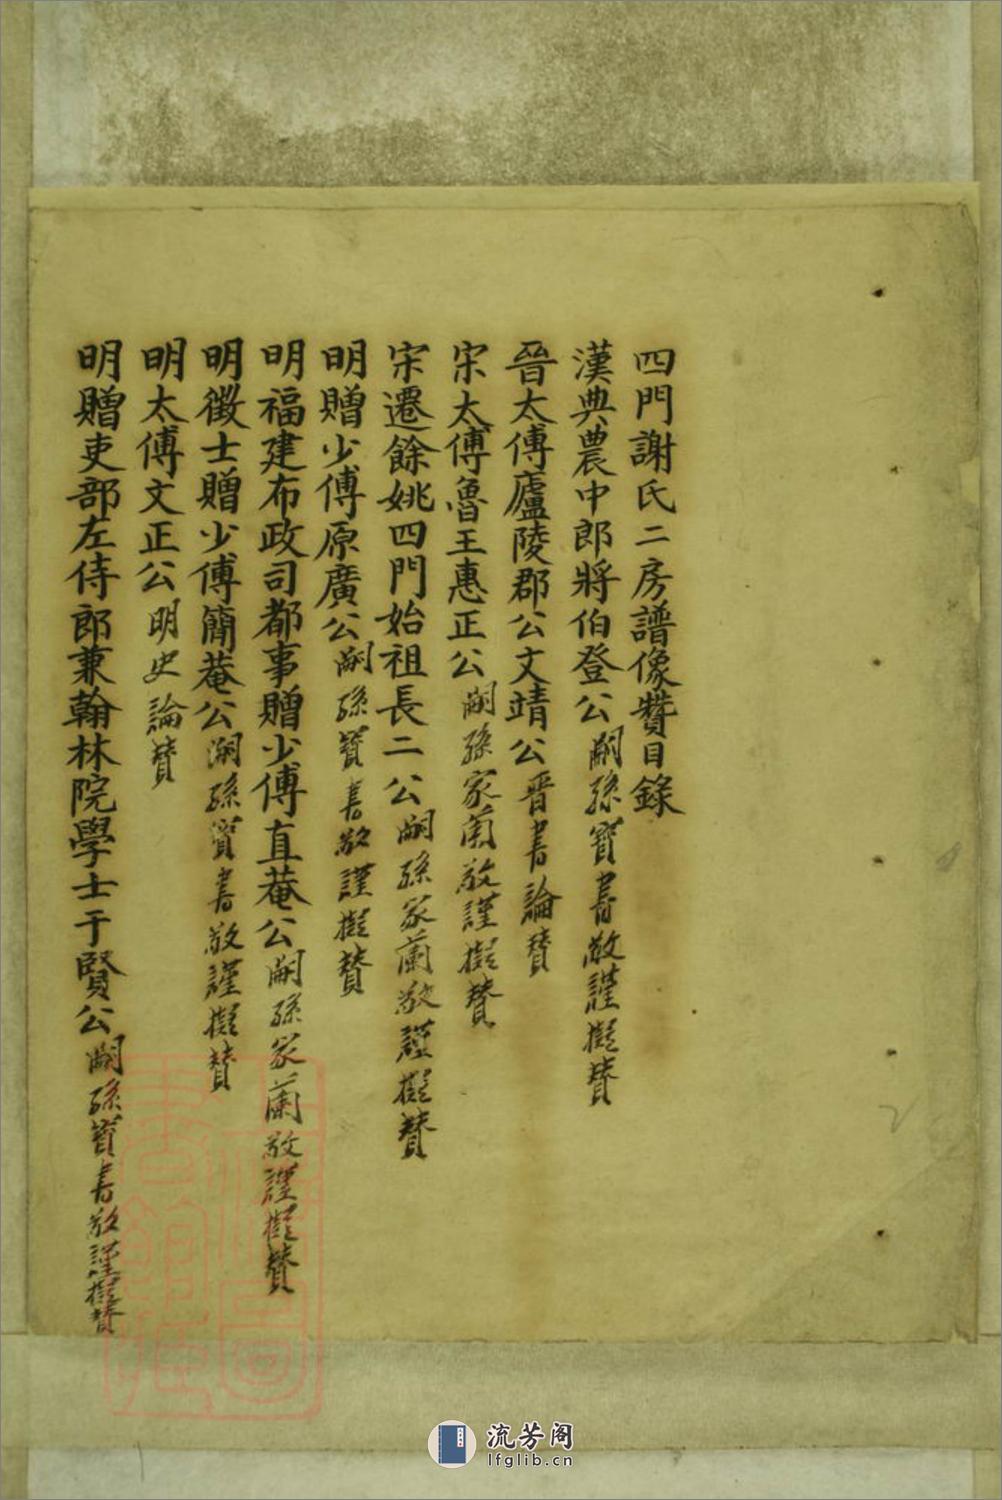 四門謝氏二房譜像贊目錄
漢典農中郎將伯登公嗣孫寶書敬謹擬贊
晉太傅廬陵郡公文靖公晉書論贊
宋太傅魯王惠正公嗣孫家蘭敬謹擬贊
宋遷餘姚四門始祖長二公嗣孫家蘭敬謹擬贊
明贈少傅原廣公嗣孫寶書敬謹擬贊
明福建布政司都事贈少傅直菴公嗣孫家蘭敬謹擬贊
明徵士贈少傅簡菴公嗣孫寶書敬謹擬贊
明太傅文正公明史論贊
明贈吏部左侍郎兼翰林院學士于賢公嗣孫寶書敬謹擬贊
流芳阁
lfglib.cn